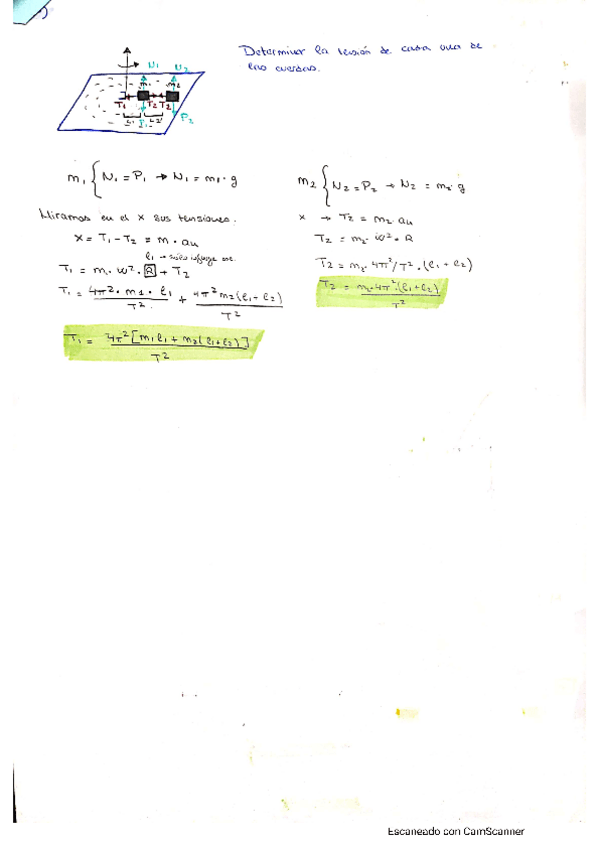 Determinar la tensión de cada una de
las cuerdas.
N1 N2
m1 m2
T1 T2 T2
L1 P1 L2 P2
m1 { N1 = P1 → N1 = m1 · g
Miramos en el x sus tensiones.
x = T1 - T2 = m · an
l1 → solo influye ese
T1 = m1 · ω² · R + T2
T1 = 4π² · m1 · l1 / T² + 4π² m2 (l1 + l2) / T²
T1 = 4π² [m1 l1 + m2 (l1 + l2)] / T²
m2 { N2 = P2 → N2 = m2 · g
x → T2 = m2 · an
T2 = m2 · ω² · R
T2 = m2 · 4π² / T² · (l1 + l2)
T2 = m2 · 4π² · (l1 + l2) / T²
Escaneado con CamScanner